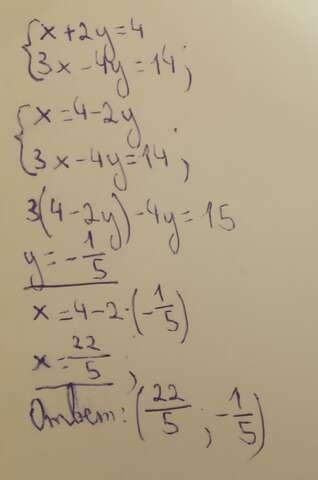 {x+2y=4
{3x-4y=14;
{x=4-2y
{3x-4y=14;
3(4-2y)-4y=15
y=-1/5
x=4-2·(-1/5)
x=22/5;
Ответ: (22/5; -1/5)